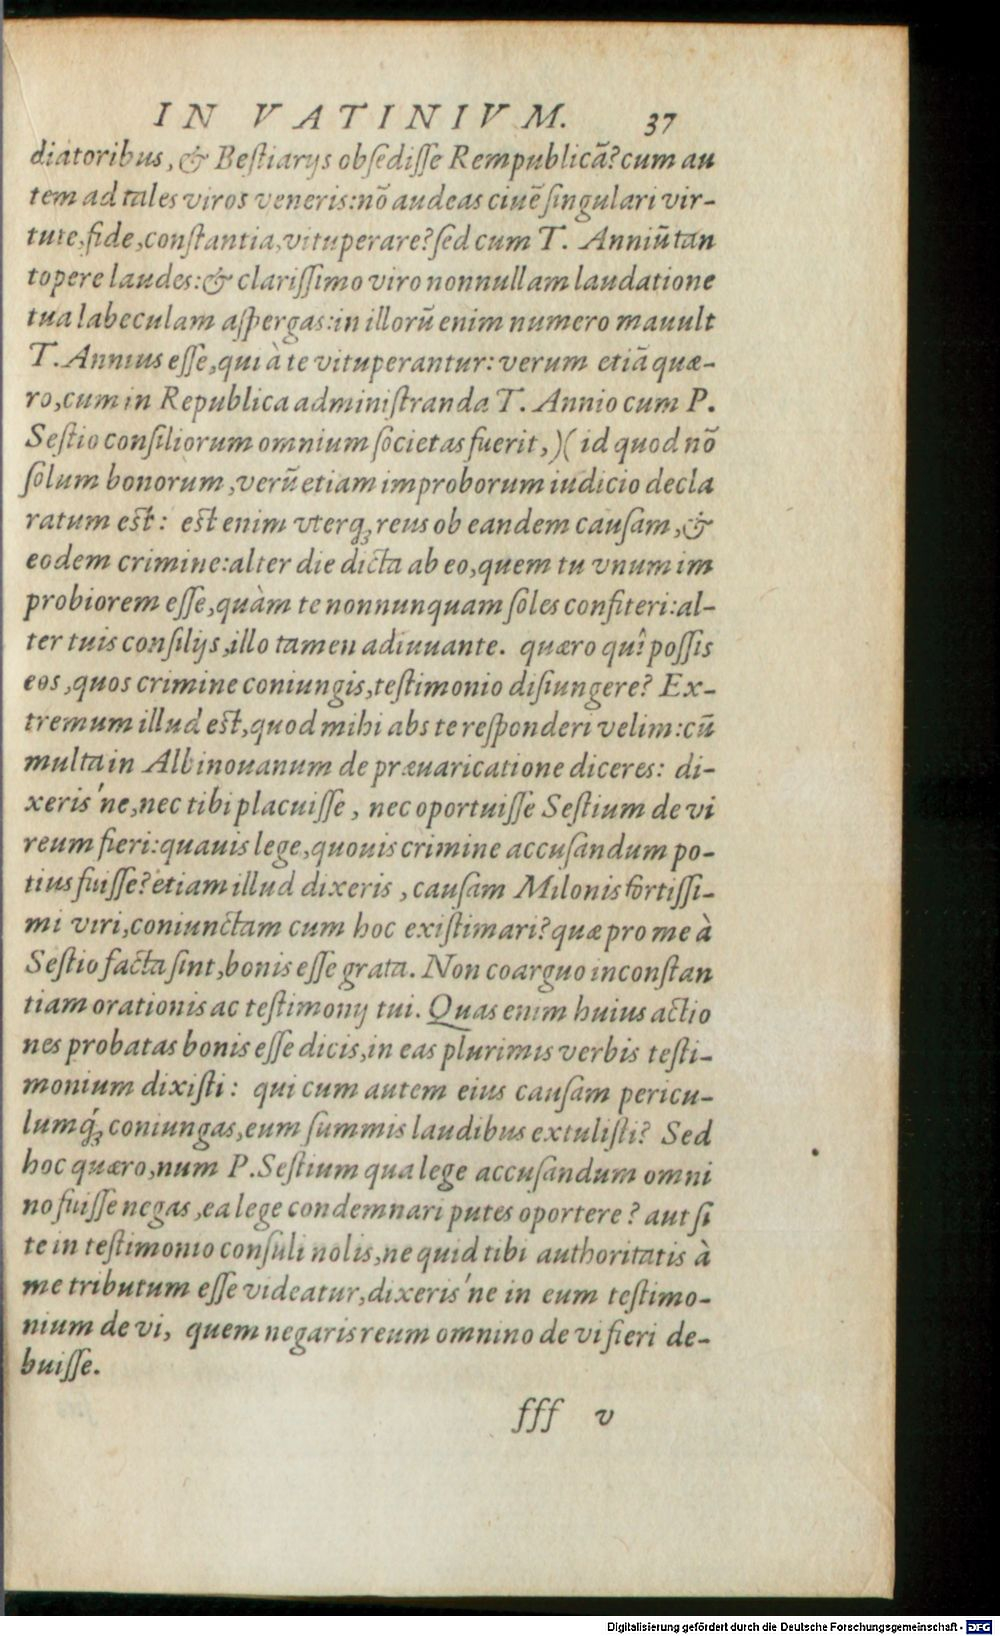 IN VATINIVM. 37
diatoribus, & Bestiarijs obsedisse Rempublicã? cum au
tem ad tales viros veneris: nõ audeas ciuẽ singulari vir-
tute, fide, constantia, vituperare? sed cum T. Anniũ tan
topere laudes: & clarissimo viro nonnullam laudatione
tua labeculam aspergas: in illorũ enim numero mauult
T. Annius esse, qui à te vituperantur: verum etiã quæ-
ro, cum in Republica administranda T. Annio cum P.
Sestio consiliorum omnium societas fuerit, )( id quod nõ
solum bonorum, verũ etiam improborum iudicio decla
ratum est: est enim vterq; reus ob eandem causam, &
eodem crimine: alter die dicta ab eo, quem tu vnum im
probiorem esse, quàm te nonnunquam soles confiteri: al-
ter tuis consilijs, illo tamen adiuuante. quæro quî possis
eos, quos crimine coniungis, testimonio disiungere? Ex-
tremum illud est, quod mihi abs te responderi velim: cũ
multa in Albinouanum de præuaricatione diceres: di-
xeris'ne, nec tibi placuisse, nec oportuisse Sestium de vi
reum fieri: quauis lege, quouis crimine accusandum po-
tius fuisse? etiam illud dixeris, causam Milonis fortissi-
mi viri, coniunctam cum hoc existimari? quæ pro me à
Sestio facta sint, bonis esse grata. Non coarguo inconstan
tiam orationis ac testimonij tui. Quas enim huius actio
nes probatas bonis esse dicis, in eas plurimis verbis testi-
monium dixisti: qui cum autem eius causam pericu-
lumq́; coniungas, eum summis laudibus extulisti? Sed
hoc quæro, num P. Sestium qua lege accusandum omni
no fuisse negas, ea lege condemnari putes oportere? aut si
te in testimonio consuli nolis, ne quid tibi authoritatis à
me tributum esse videatur, dixeris'ne in eum testimo-
nium de vi, quem negaris reum omnino de vi fieri de-
buisse.
fff v
Digitalisierung gefördert durch die Deutsche Forschungsgemeinschaft - DFG